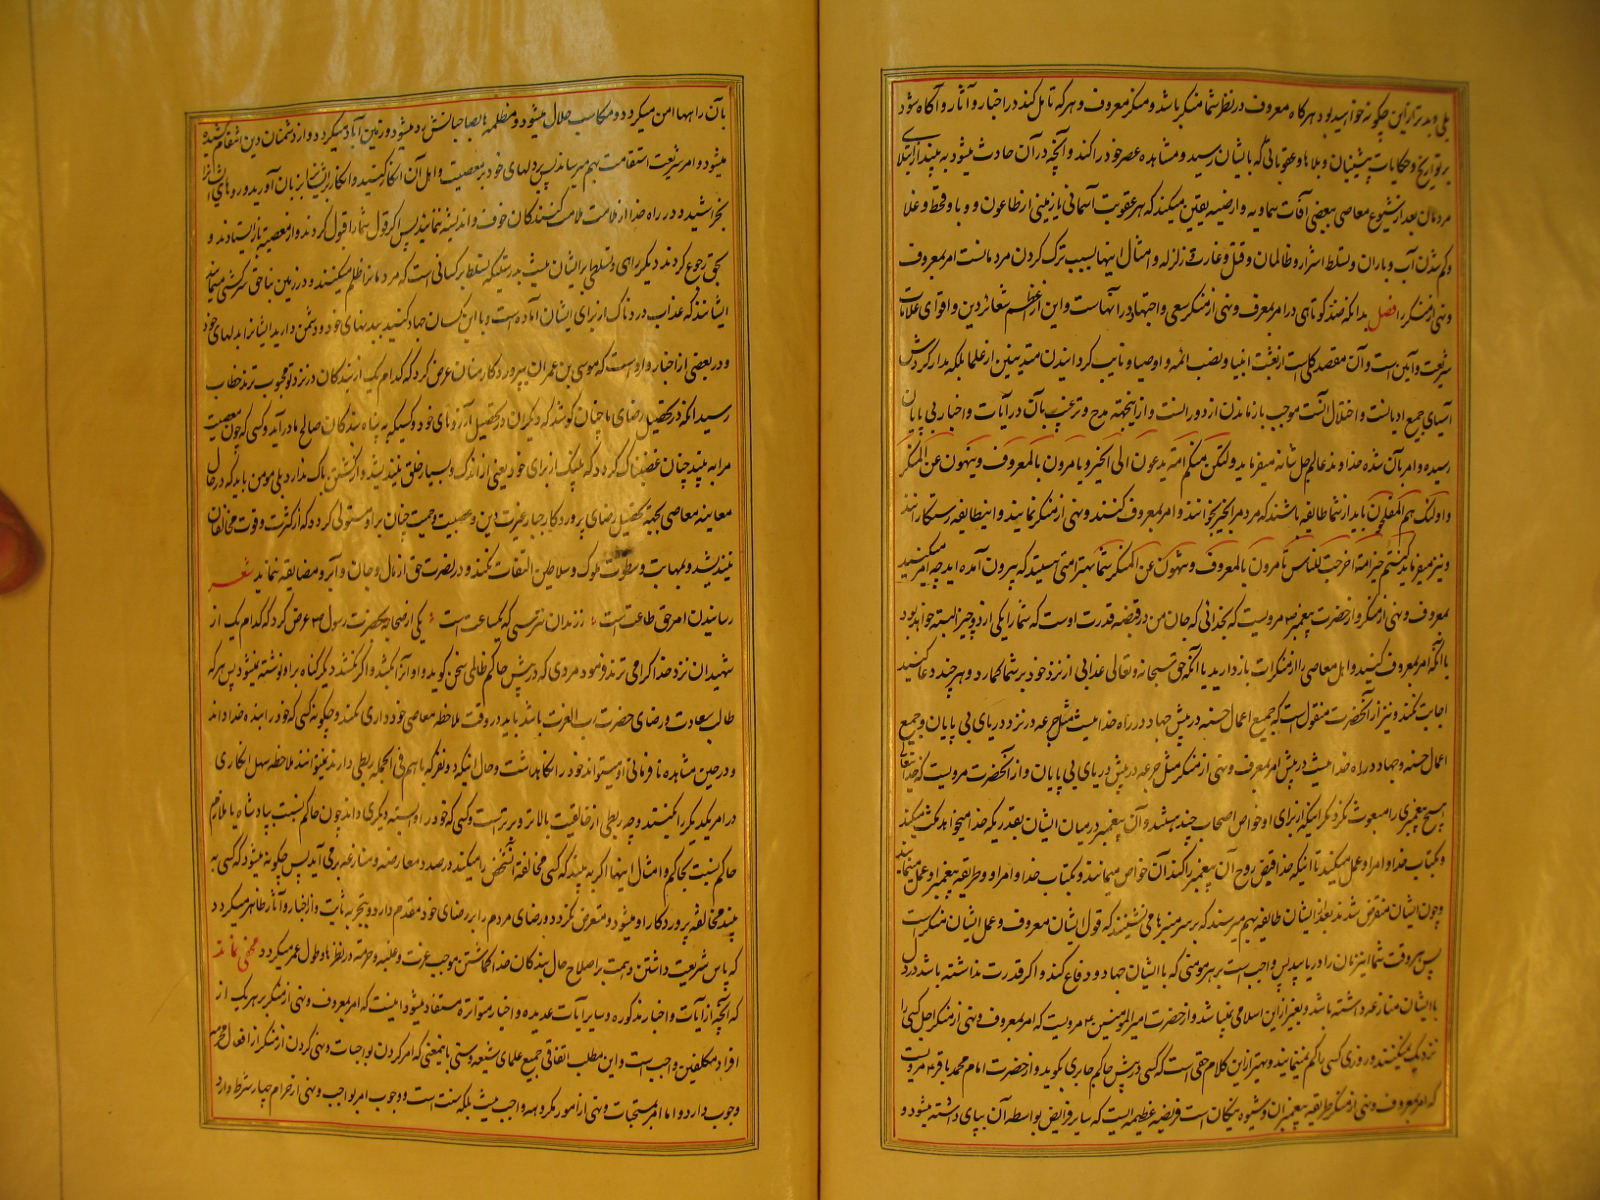 بلی و بدتر از این چگونه خواهید بود هرگاه معروف در نظر شما منکر باشد و منکر معروف و هر که تامل کند در اخبار و آثار و آگاه شود
بر تواریخ و حکایات پیشینیان و بلاها و عقوباتی که بایشان رسید و مشاهده عصر خود را کند و آنچه در آن حادث میشود به بیند از ابتلای
مردمان بعد از شیوع معاصی ببعضی آفات سماویه و ارضیه یقین میکند که هر عقوبت آسمانی یا زمینی از طاعون و وبا و قحط و غلا
و کم شدن آب و باران و تسلط اشرار و ظالمان و قتل و غارت و زلزله و امثال اینها بسبب ترک کردن مردمانست امر بمعروف
و نهی از منکر را فصل بدانکه ضد کوتاهی در امر بمعروف و نهی از منکر سعی و اجتهاد در آنهاست و این از اعظم شعائر دین و اقوای علامات
شریعت و آیین است و آن مقصد کلی است از بعثت انبیا و نصب ائمه و اوصیا و نایب گردانیدن متدینین از علما بلکه مدار گردش
آسیای جمیع ادیانست و اختلال آنست موجب بازماندن از دورانست و از اینجهة مدح و ترغیب بآن در آیات و اخبار بی پایان
رسیده و امر بآن شده خداوند عالم جل شانه میفرماید ولتکن منکم امة یدعون الی الخیر و یامرون بالمعروف و ینهون عن المنکر
و اولئک هم المفلحون باید از شما طایفه باشند که مردم را بخیر بخوانند و امر بمعروف کنند و نهی از منکر نمایند و اینطایفه رستگارانند
و نیز میفرماید کنتم خیر امة اخرجت للناس تامرون بالمعروف و تنهون عن المنکر شما بهتر امتی هستید که بیرون آمده اید چه امر میکنید
بمعروف و نهی از منکر و از حضرت پیغمبر ص مرویست که بخدائی که جان من در قبضه قدرت اوست که شما را یکی از دو چیز البته خواهد بود
یا آنکه امر بمعروف کنید و اهل معاصی را از منکرات باز دارید یا آنکه حق سبحانه و تعالی عذابی از نزد خود بر شما گمارد و هر چند دعا کنید
اجابت نکند و نیز از آنحضرت منقول است که جمیع اعمال حسنه در پیش جهاد در راه خدا نیست مثل جرعه در نزد دریای بی پایان و جمیع
اعمال حسنه و جهاد در راه خدا نیست در پیش امر بمعروف و نهی از منکر مثل جرعه در پیش دریای بی پایان و از آنحضرت مرویست که خدایتعالی
هیچ پیغمبری را مبعوث نکرد مگر اینکه از برای او خواص اصحاب چند هستند و آن پیغمبر در میان ایشان بقدریکه خدا میخواهد مکث میکند
و بکتاب خدا و امر او عمل میکند تا اینکه خدا قبض روح آن پیغمبر را کند آن خواص میمانند و بکتاب خدا و امر او و طریقه پیغمبر او عمل مینمایند
و چون ایشان منقرض شدند بعد از ایشان طایفه بهم میرسند که بر سر منبرها می نشینند که قول ایشان معروف و عمل ایشان منکر است
پس هر وقت شما این زمان را دریابید پس واجب است بر هر مومنی که با ایشان جهاد و دفاع کند و اگر قدرت نداشته باشد در دل
با ایشان منازعه داشته باشد و بغیر از این اسلامی نمیباشد و از حضرت امیر المومنین ع مرویست که امر بمعروف و نهی از منکر اجل کسی را
نزدیک نمیکنند و روزی کسی را کم نمینمایند و بهتر از این کلام حقی است که کسی در پیش حاکم جابری بگوید و از حضرت امام محمد باقر ع مرویست
که امر بمعروف و نهی از منکر طریقه پیغمبران و شیوه نیکان است فریضه عظیمه ایست که سایر فرایض بواسطه آن بپای داشته میشود و
بآن راهها امن میگردد و مکاسب حلال میشود و مظلمه بصاحبانش رد میشود و زمین آباد میگردد و از دشمنان دین انتقام کشیده
میشود و امر شریعت استقامت بهم میرساند پس بدلهای خود بر معصیت و اهل آن انکار کنید و انکار را بزبان آورید و رویهای ایشانرا
بخراشید و در راه خدا از ملامت ملامت کنندگان خوف و اندیشه ننمائید پس اگر قول شما را قبول کردند و از معصیة باز ایستادند و
بحق رجوع کردند دیگر راهی و تسلطی بر ایشان نیست بدرستیکه تسلط بر کسانی است که مردمانرا ظلم میکنند و در زمین بناحق سرکشی مینمایند
ایشانند که عذاب دردناک از برای ایشان آماده است و با این کسان جهاد کنید ببدنهای خود و دشمن دارید ایشانرا بدلهای خود
و در بعضی از اخبار وارد است که موسی بن عمران بپروردگار منان عرض کرد که کدام یک از بندگان در نزد تو محبوب ترند خطاب
رسید آنکه در تحصیل رضای ما چنان کوشد که دیگران در تحصیل آرزوهای خود و کسیکه به پناه بندگان صالح ما درآید و کسی که چون معصیت
مرا به بیند چنان غضبناک گردد که پلنگ از برای خود یعنی از اندک و بسیار خلق نیندیشد و از کشتن باک ندارد بلی مومن باید که در حال
معاینه معاصی بجهة تحصیل رضای پروردگار جبار غیرت دین و عصبیت و حمیت چنان بر او مستولی گردد که از کثرت و قوت مخالفان
نیندیشد و بمهابت و سطوت ملوک و سلاطین التفات نکند و در نصرت حق از مال و جان و آبرو مضایقه ننماید شعر
رساندن امر حق طاعت است ززندان نترسی که یکساعت است یکی از صحابه بحضرت رسول ص عرض کرد که کدام یک از
شهیدان نزد خدا گرامی ترند فرمود مردی که در پیش حاکم ظالمی سخن گوید و او آنرا بکشد و اگر نکشد دیگر گناه بر او نوشته نمیشود پس هر که
طالب سعادت و رضای حضرت رب العزت باشد باید در وقت ملاحظه معاصی خودداری نکند و چگونه کسی که خود را بنده خدا داند
و در حین مشاهده نافرمانی او میتواند خود را نگاهداشت و حال اینکه دو نفر که با هم فی الجمله ربطی دارند نمیتوانند ملاحظه سهل انکاری
در امر یکدیگر را کنند و چه ربطی از خالقیت بالاتر و برتر است و کسی که خود را وابسته دیگری داند چون حاکم نسبت بپادشاه یا ملازم
حاکم نسبت بحاکم و امثال اینها اگر به بیند که کسی مخالفت آنشخص را میکند در صدد معارضه و منازعه برمی آید پس چگونه میشود که کسی به
بیند مخالفت پروردگار او میشود و متعرض نگردد و رضای مردم را بر رضای خود مقدم دارد و بتجربه ثابت و از اخبار و آثار ظاهر میگردد
که پاس شریعت داشتن و همت بر اصلاح حال بندگان خدا گماشتن موجب عزت و غلبه و حرمة در نظرها و طول عمر میگردد مخفی نماند
که آنچه از آیات و اخبار مذکوره و سایر آیات عدیده و اخبار متواتره مستفاد میشود اینست که امر بمعروف و نهی از منکر بر هر یک از
افراد مکلفین واجب است و این مطلب اتفاقی جمیع علمای شیعه و سنی باینمعنی که امر کردن بواجبات و نهی کردن از منکر از افعال محرمه
وجوب دارد و اما امر بمستحبات و نهی از امور مکروهه واجب نیست بلکه سنت است و وجوب امر بواجب و نهی از حرام چهار شرط دارد